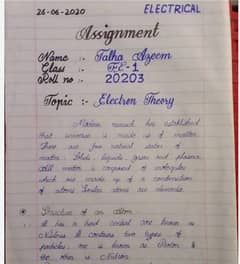 26-06-2020 ELECTRICAL
Assignment
Name :- Talha Azeem
Class :- FE-1
Roll no :- 20203
Topic :- Electron Theory
Modern research has established
that universe is made up of matter.
There are four natural states of
matter. Solids, liquids, gases and plasma
All matter is composed of molecules
which are made up of a combination
of atoms
Structure of an atom
It has a hard central core known as
Nucleus. It contains two types of
particles, one is known as Proton &
the other is Neutron